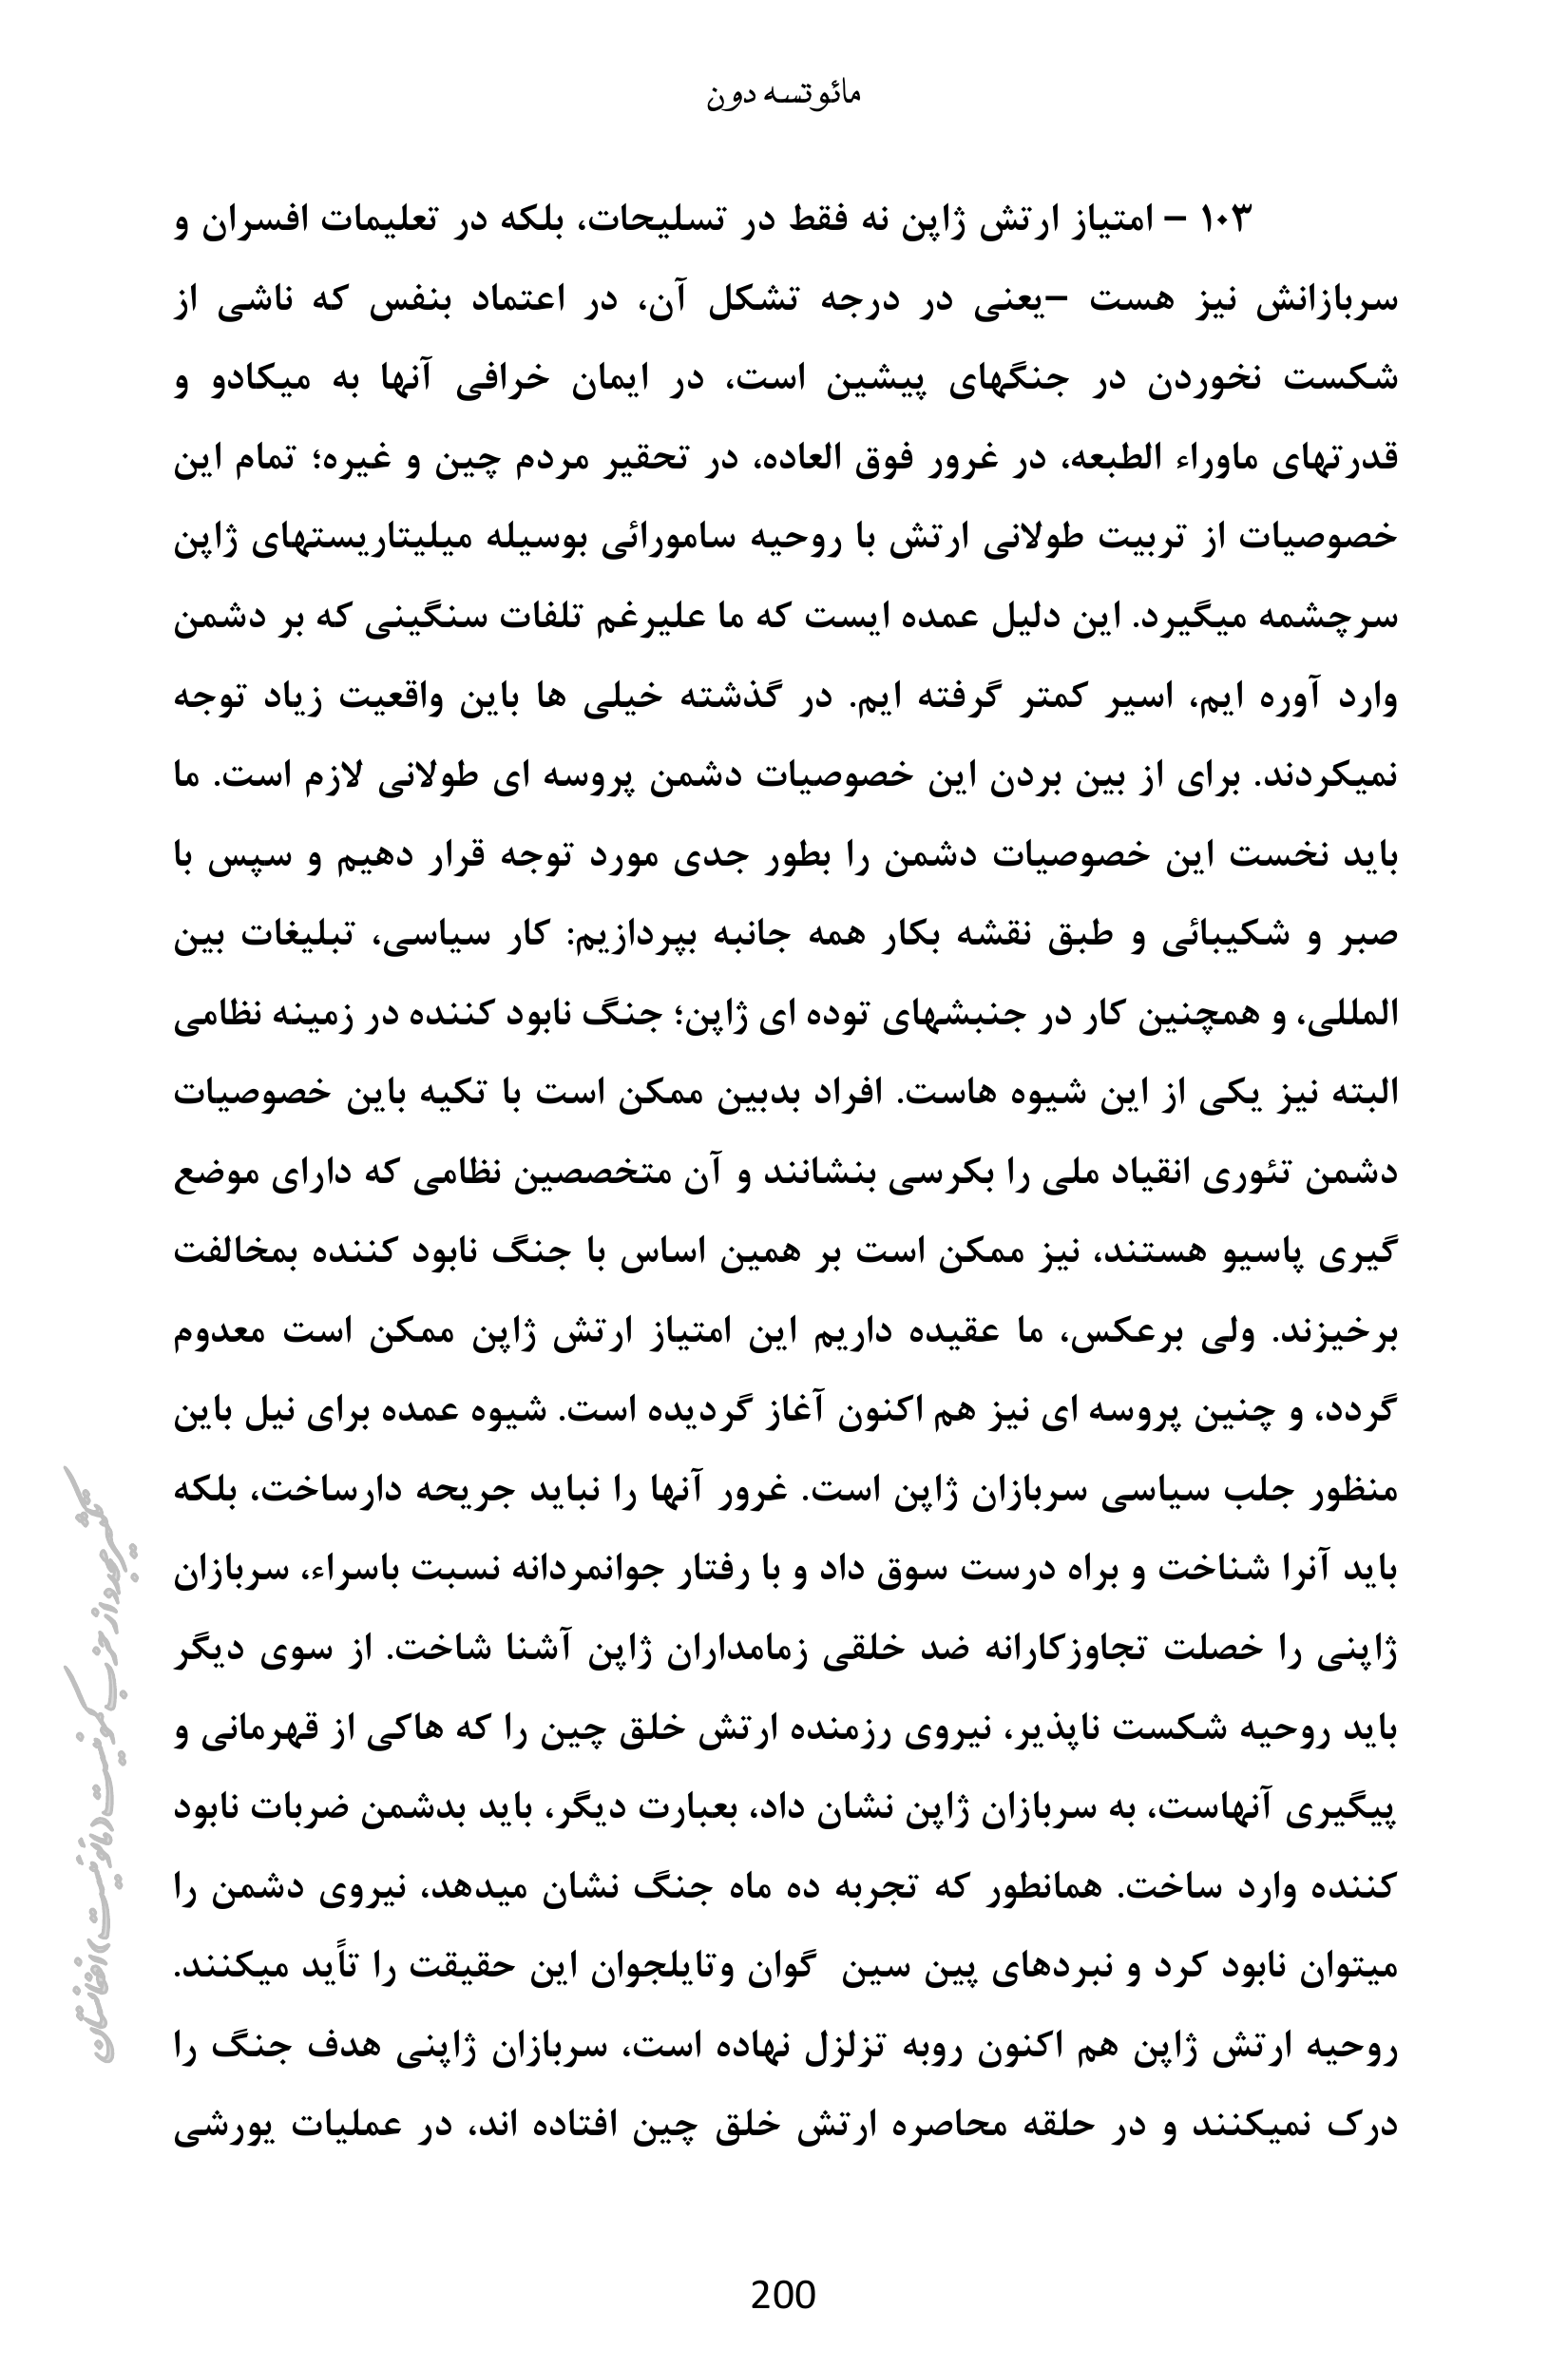 مائوتسه دون
۱۰۳ – امتیاز ارتش ژاپن نه فقط در تسلیحات، بلکه در تعلیمات افسران و
سربازانش نیز هست –یعنی در درجه تشکل آن، در اعتماد بنفس که ناشی از
شکست نخوردن در جنگهای پیشین است، در ایمان خرافی آنها به میکادو و
قدرتهای ماوراء الطبعه، در غرور فوق العاده، در تحقیر مردم چین و غیره؛ تمام این
خصوصیات از تربیت طولانی ارتش با روحیه سامورائی بوسیله میلیتاریستهای ژاپن
سرچشمه میگیرد. این دلیل عمده ایست که ما علیرغم تلفات سنگینی که بر دشمن
وارد آوره ایم، اسیر کمتر گرفته ایم. در گذشته خیلی ها باین واقعیت زیاد توجه
نمیکردند. برای از بین بردن این خصوصیات دشمن پروسه ای طولانی لازم است. ما
باید نخست این خصوصیات دشمن را بطور جدی مورد توجه قرار دهیم و سپس با
صبر و شکیبائی و طبق نقشه بکار همه جانبه بپردازیم: کار سیاسی، تبلیغات بین
المللی، و همچنین کار در جنبشهای توده ای ژاپن؛ جنگ نابود کننده در زمینه نظامی
البته نیز یکی از این شیوه هاست. افراد بدبین ممکن است با تکیه باین خصوصیات
دشمن تئوری انقیاد ملی را بکرسی بنشانند و آن متخصصین نظامی که دارای موضع
گیری پاسیو هستند، نیز ممکن است بر همین اساس با جنگ نابود کننده بمخالفت
برخیزند. ولی برعکس، ما عقیده داریم این امتیاز ارتش ژاپن ممکن است معدوم
گردد، و چنین پروسه ای نیز هم اکنون آغاز گردیده است. شیوه عمده برای نیل باین
منظور جلب سیاسی سربازان ژاپن است. غرور آنها را نباید جریحه دارساخت، بلکه
باید آنرا شناخت و براه درست سوق داد و با رفتار جوانمردانه نسبت باسراء، سربازان
ژاپنی را خصلت تجاوزکارانه ضد خلقی زمامداران ژاپن آشنا شاخت. از سوی دیگر
باید روحیه شکست ناپذیر، نیروی رزمنده ارتش خلق چین را که هاکی از قهرمانی و
پیگیری آنهاست، به سربازان ژاپن نشان داد، بعبارت دیگر، باید بدشمن ضربات نابود
کننده وارد ساخت. همانطور که تجربه ده ماه جنگ نشان میدهد، نیروی دشمن را
میتوان نابود کرد و نبردهای پین سین گوان وتایلجوان این حقیقت را تاًید میکنند.
روحیه ارتش ژاپن هم اکنون روبه تزلزل نهاده است، سربازان ژاپنی هدف جنگ را
درک نمیکنند و در حلقه محاصره ارتش خلق چین افتاده اند، در عملیات یورشی
200
تکثیر مجدد از حزب کمونیست (مائوئیست) افغانستان